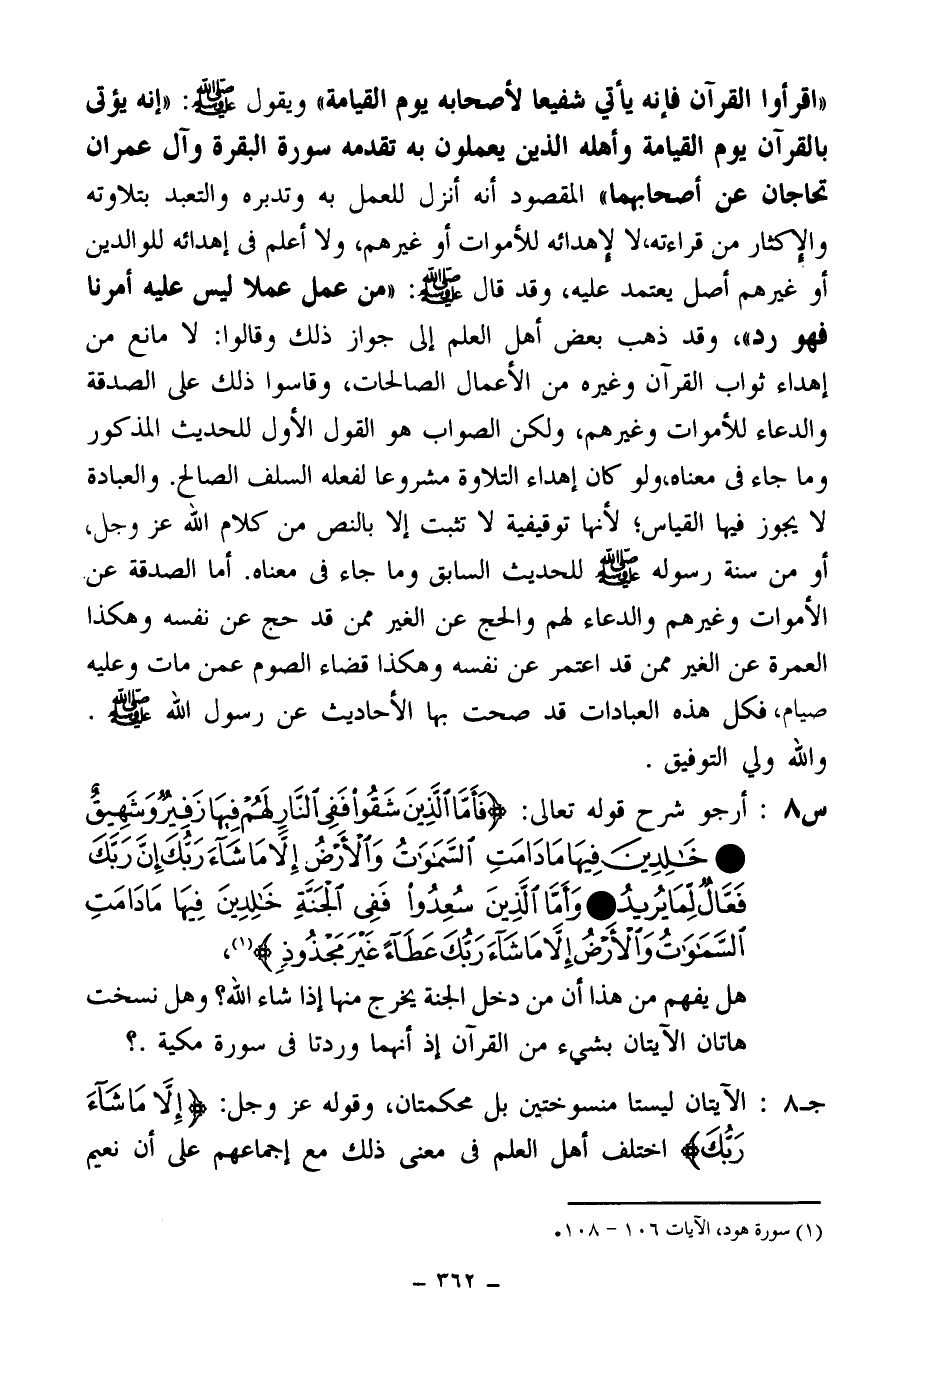 «اقرأوا القرآن فإنه يأتي شفيعا لأصحابه يوم القيامة» ويقول ﷺ: «إنه يؤتى
بالقرآن يوم القيامة وأهله الذين يعملون به تقدمه سورة البقرة وآل عمران
تحاجان عن أصحابهما» المقصود أنه أنزل للعمل به وتدبره والتعبد بتلاوته
والإكثار من قراءته،لا لإهدائه للأموات أو غيرهم، ولا أعلم فى إهدائه للوالدين
أو غيرهم أصل يعتمد عليه، وقد قال ﷺ: «من عمل عملا ليس عليه أمرنا
فهو رد»، وقد ذهب بعض أهل العلم إلى جواز ذلك وقالوا: لا مانع من
إهداء ثواب القرآن وغيره من الأعمال الصالحات، وقاسوا ذلك على الصدقة
والدعاء للأموات وغيرهم، ولكن الصواب هو القول الأول للحديث المذكور
وما جاء فى معناه،ولو كان إهداء التلاوة مشروعا لفعله السلف الصالح. والعبادة
لا يجوز فيها القياس؛ لأنها توقيفية لا تثبت إلا بالنص من كلام الله عز وجل،
أو من سنة رسوله ﷺ للحديث السابق وما جاء فى معناه. أما الصدقة عن
الأموات وغيرهم والدعاء لهم والحج عن الغير ممن قد حج عن نفسه وهكذا
العمرة عن الغير ممن قد اعتمر عن نفسه وهكذا قضاء الصوم عمن مات وعليه
صيام، فكل هذه العبادات قد صحت بها الأحاديث عن رسول الله ﷺ .
والله ولي التوفيق .
س٨ : أرجو شرح قوله تعالى: ﴿فَأَمَّا ٱلَّذِينَ شَقُوا۟ فَفِى ٱلنَّارِ لَهُمْ فِيهَا زَفِيرٌ وَشَهِيقٌ
● خَٰلِدِينَ فِيهَا مَا دَامَتِ ٱلسَّمَٰوَٰتُ وَٱلْأَرْضُ إِلَّا مَا شَآءَ رَبُّكَ إِنَّ رَبَّكَ
فَعَّالٌ لِّمَا يُرِيدُ ● وَأَمَّا ٱلَّذِينَ سُعِدُوا۟ فَفِى ٱلْجَنَّةِ خَٰلِدِينَ فِيهَا مَا دَامَتِ
ٱلسَّمَٰوَٰتُ وَٱلْأَرْضُ إِلَّا مَا شَآءَ رَبُّكَ عَطَآءً غَيْرَ مَجْذُوذٍ﴾(١)،
هل يفهم من هذا أن من دخل الجنة يخرج منها إذا شاء الله؟ وهل نسخت
هاتان الآيتان بشيء من القرآن إذ أنهما وردتا فى سورة مكية .؟
جـ٨ : الآيتان ليستا منسوختين بل محكمتان، وقوله عز وجل: ﴿إِلَّا مَا شَآءَ
رَبُّكَ﴾ اختلف أهل العلم فى معنى ذلك مع إجماعهم على أن نعيم
(١) سورة هود، الآيات ١٠٦ – ١٠٨.
– ٣٦٢ –